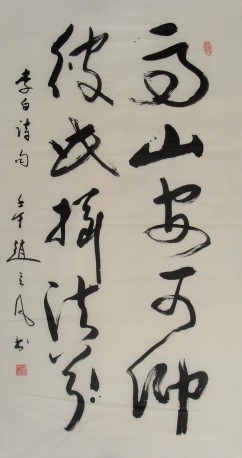 高山安可仰
徒此揖清芬
李白詩句 壬午 趙 书